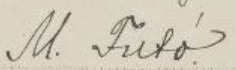 M. Futó.